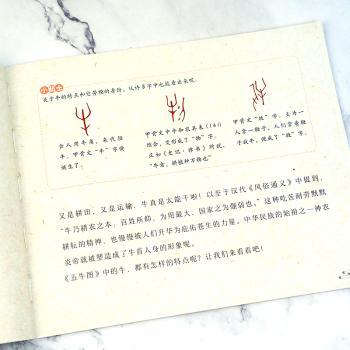 小贴士
关于牛的特点和它劳顿的身份，从许多字中也能看出来呢。
古人用牛角，来代指
牛，甲骨文"牛"字便
诞生了。
甲骨文中牛和农具耒（lěi）
组合，变形成了"物"字，
正如《史记·律书》的说，
"牛者，耕植种万物也"
甲骨文"牧"字，左为一
人拿一鞭子，人们常常鞭
子放牛，便成了"牧"字。
又是耕田，又是运输，牛真是太能干啦！以至于汉代《风俗通义》中提到，
"牛乃耕农之本，百姓所仰，为用最大，国家之为强弱也。"这种吃苦耐劳默默
耕耘的精神，也慢慢被人们升华为庇佑苍生的力量。中华民族的始祖之一神农
炎帝就被塑造成了牛首人身的形象呢。
《五牛图》中的牛，都有怎样的特点呢？让我们来看看吧！